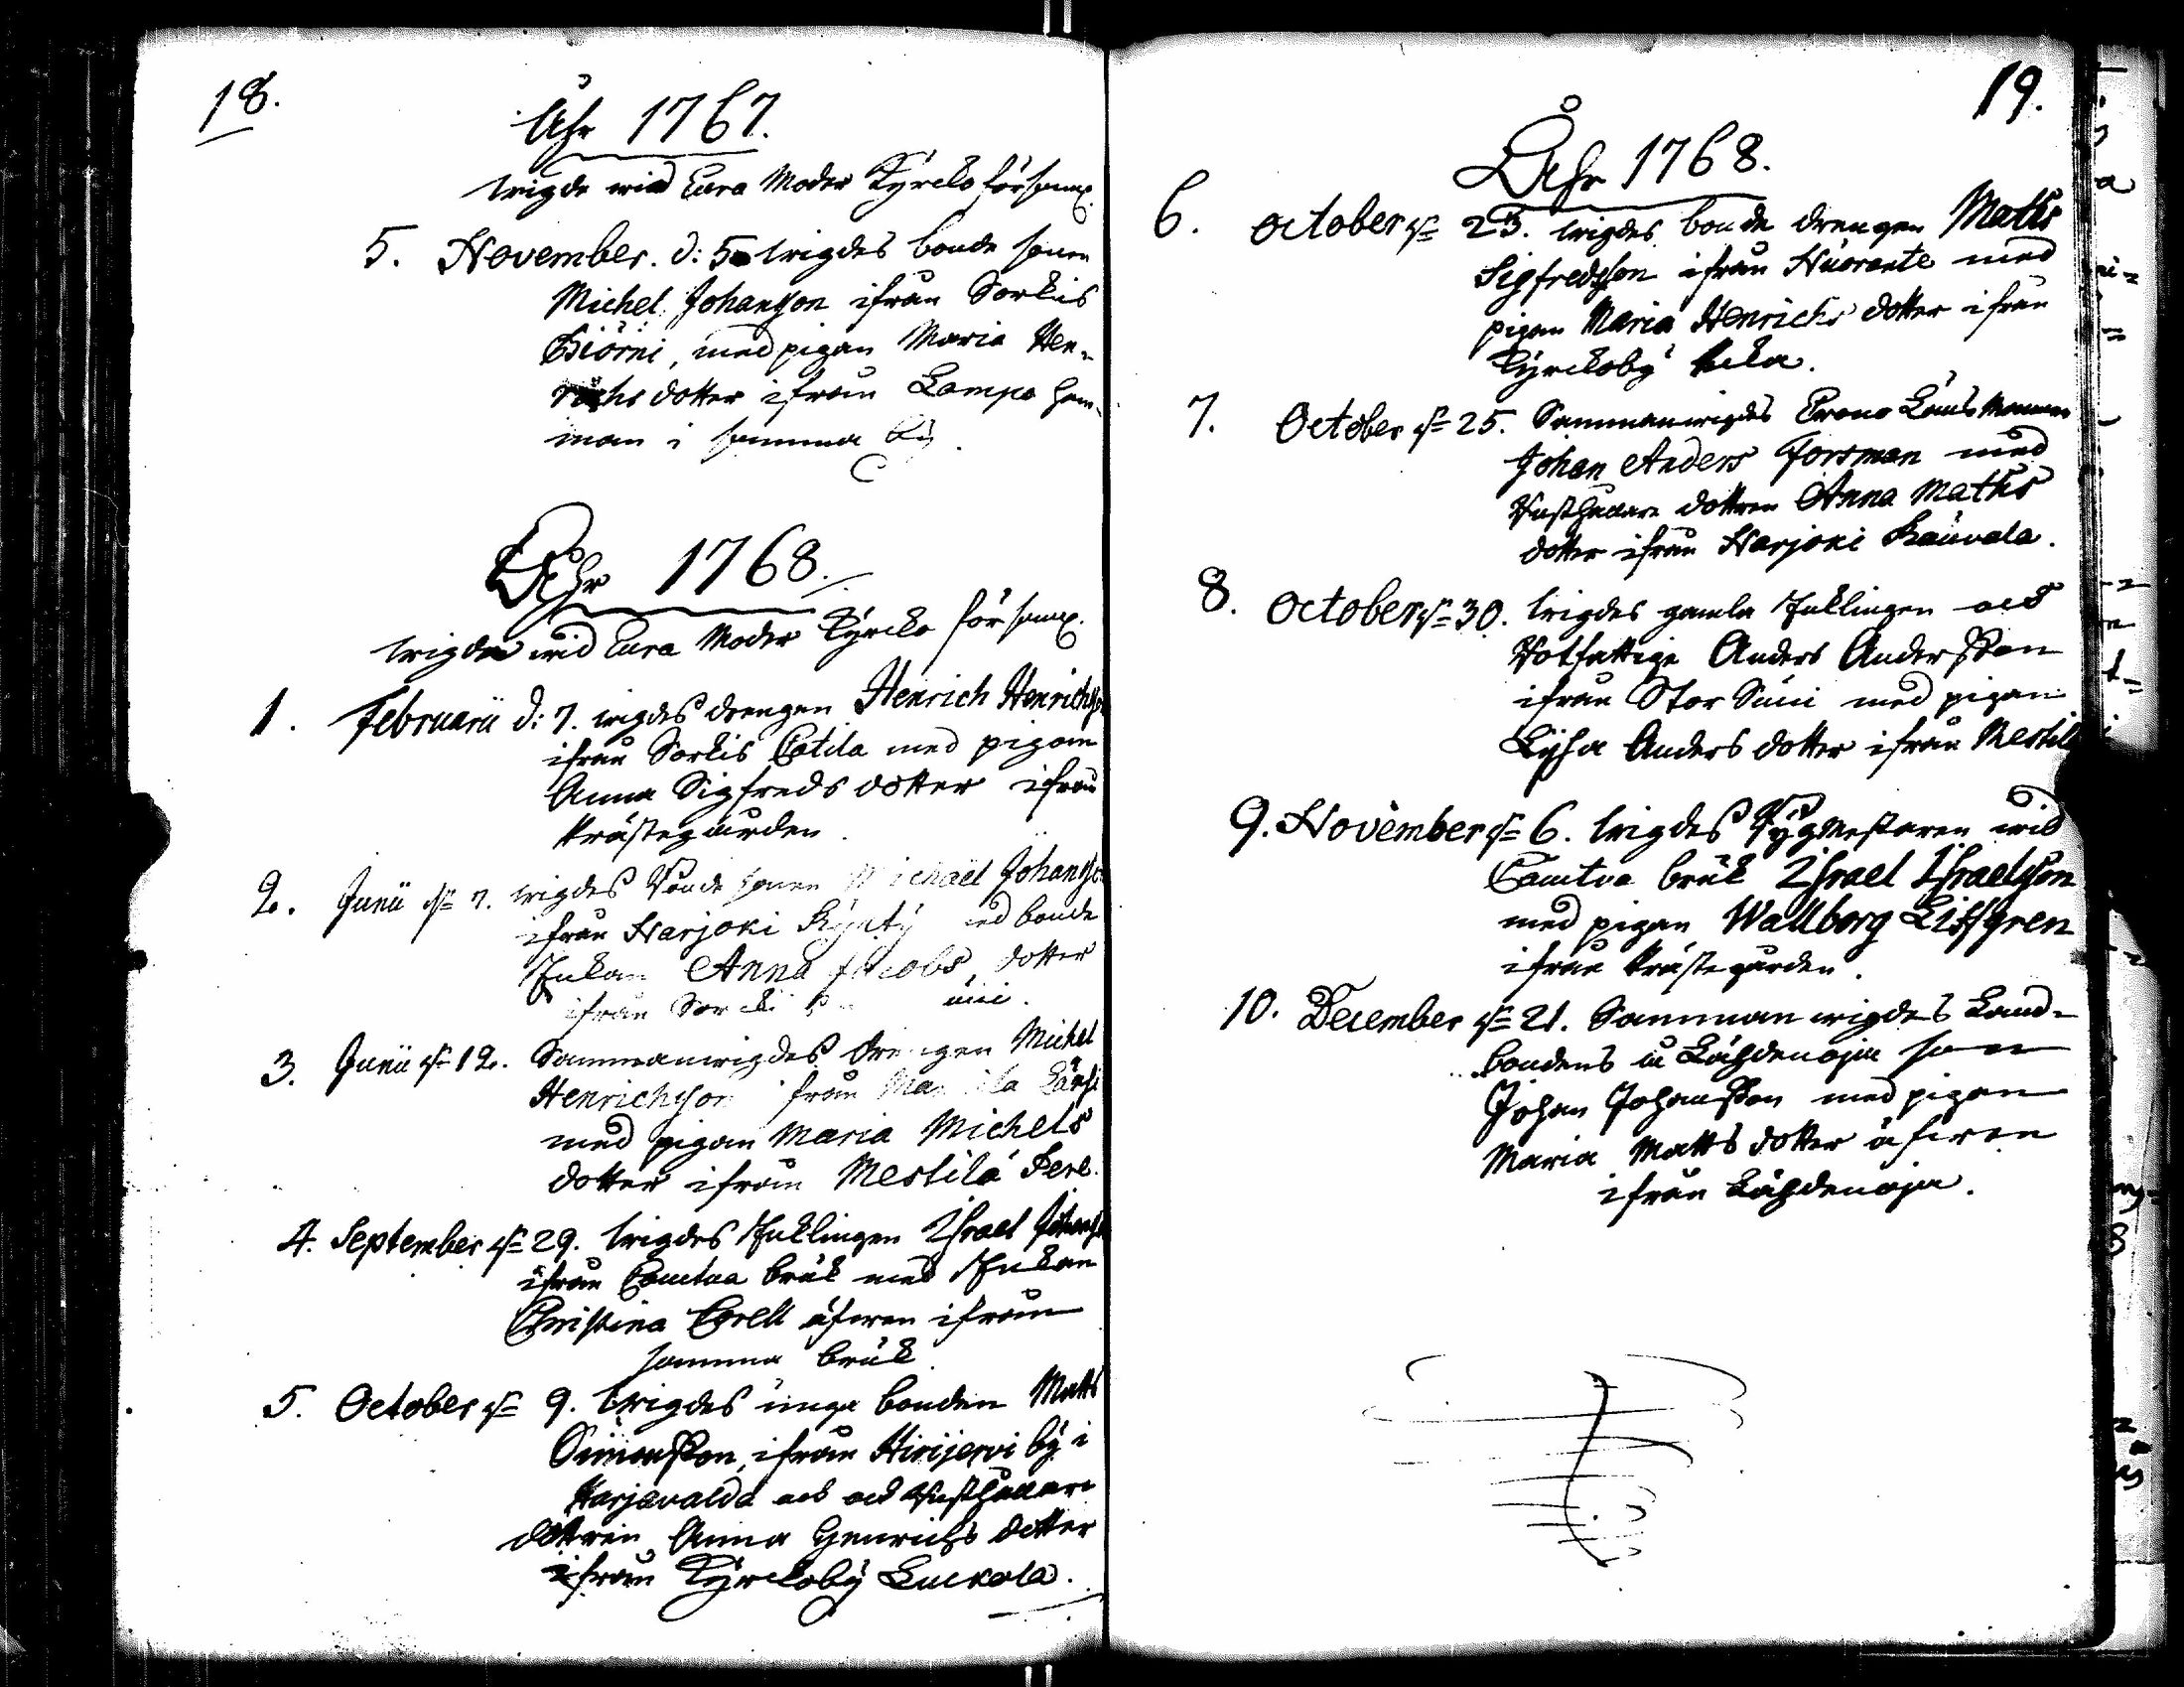 18.
Åhr 1767.
wigde wid Eura Moder Kyrcko församl.
5. November. d: 5 wigdes bonde sonen
Michel Johansson ifrån Sorkis
Biörni, med pigan Maria Hen-
richs dotter ifrån Lampo hem-
man i samma by.
Åhr 1768.
wigde wid Eura Moder Kyrcko församl.
1. Februarii d: 7. wigdes drengen Henrich Henrichsson
ifrån Sorkis Cotila med pigan
Anna Sigfreds dotter ifrån
Prästegården.
2. Junii d= 7. wigdes Bonde sonen Michael Johansson
ifrån Harjoki med bonde
Enkan Anna Jacobs dotter
ifrån
3. Junii d= 12. Sammanwigdes drengen Michel
Henrichsson ifrån
med pigan Maria Michels
dotter ifrån Mestilä Pere.
4. September d= 29. wigdes Enklingen Israel
ifrån Cautua bruk med Enkan
Christina äfwen ifrån
samma bruk.
5. October d= 9. wigdes unga bonden Matts
Simonsson, ifrån Hirijervi by i
Harjavalda och
dottren Anna Henrichs dotter
ifrån Kyrckoby Luckola.
19.
Åhr 1768.
6. October d= 23. wigdes bonde drengen Maths
Sigfredsson ifrån Nuorante med
pigan Maria Henrichs dotter ifrån
Kyrckoby
7. October d= 25. Sammanwigdes Crono Länsmannen
Johan Anders Forsman med
Rusthållare dottren Anna Maths
dotter ifrån Harjoki Kauvala.
8. October d= 30. wigdes gamla Enklingen och
Rotfattige Anders Andersson
ifrån Stor Suni med pigan
Lisa Anders dotter ifrån Mestilä
9. November d= 6. wigdes wid
Cautua bruk Israel Israelsson
med pigan Wallborg Liffgren
ifrån Prästegården.
10. December d= 21. Sammanwigdes Land-
bondens å Lähdenoja son
Johan Johansson med pigan
Maria Matts dotter äfwen
ifrån Lähdenoja.